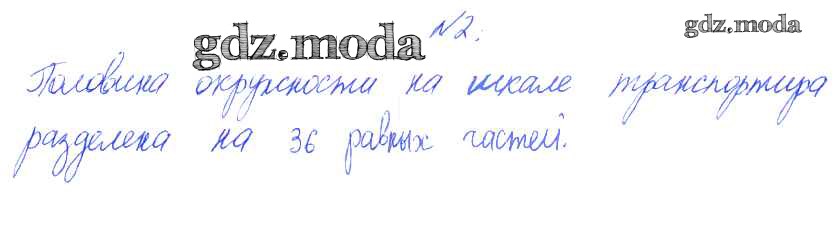 gdz.moda №2. gdz.moda
Половина окружности на шкале транспортира
разделена на 36 равных частей.